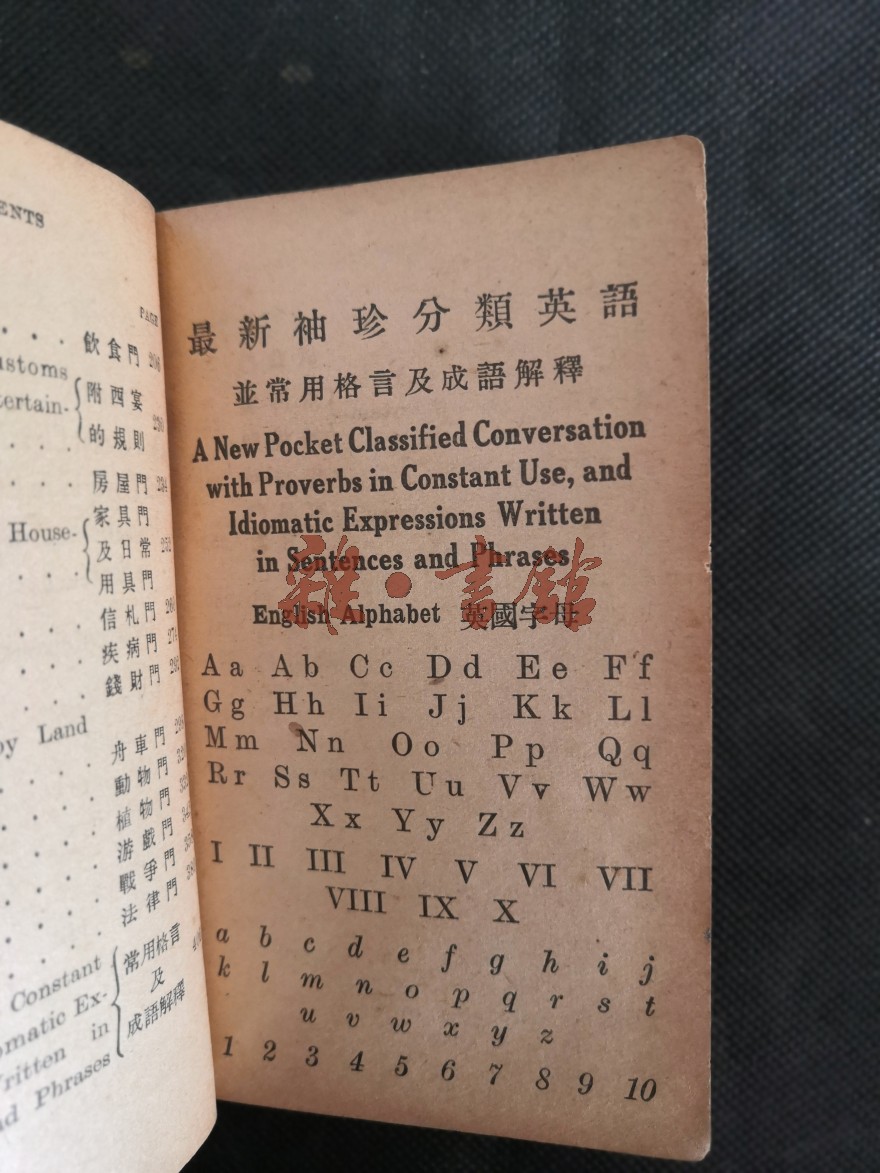 ENTS
PAGE
飲食門
ustoms
ertain-
附西宴
的規則
房屋門
House-
家具門
及日常
用具門
信札門
疾病門
錢財門
by Land
舟車門
動物門
植物門
游戲門
戰爭門
法律門
Constant
omatic Ex-
ritten in
nd Phrases
常用格言
及
成語解釋
最新袖珍分類英語
並常用格言及成語解釋
A New Pocket Classified Conversation
with Proverbs in Constant Use, and
Idiomatic Expressions Written
in Sentences and Phrases
雜·書館
English Alphabet 英國字母
Aa Ab Cc Dd Ee Ff
Gg Hh Ii Jj Kk Ll
Mm Nn Oo Pp Qq
Rr Ss Tt Uu Vv Ww
Xx Yy Zz
I II III IV V VI VII
VIII IX X
a b c d e f g h i j
k l m n o p q r s t
u v w x y z
1 2 3 4 5 6 7 8 9 10